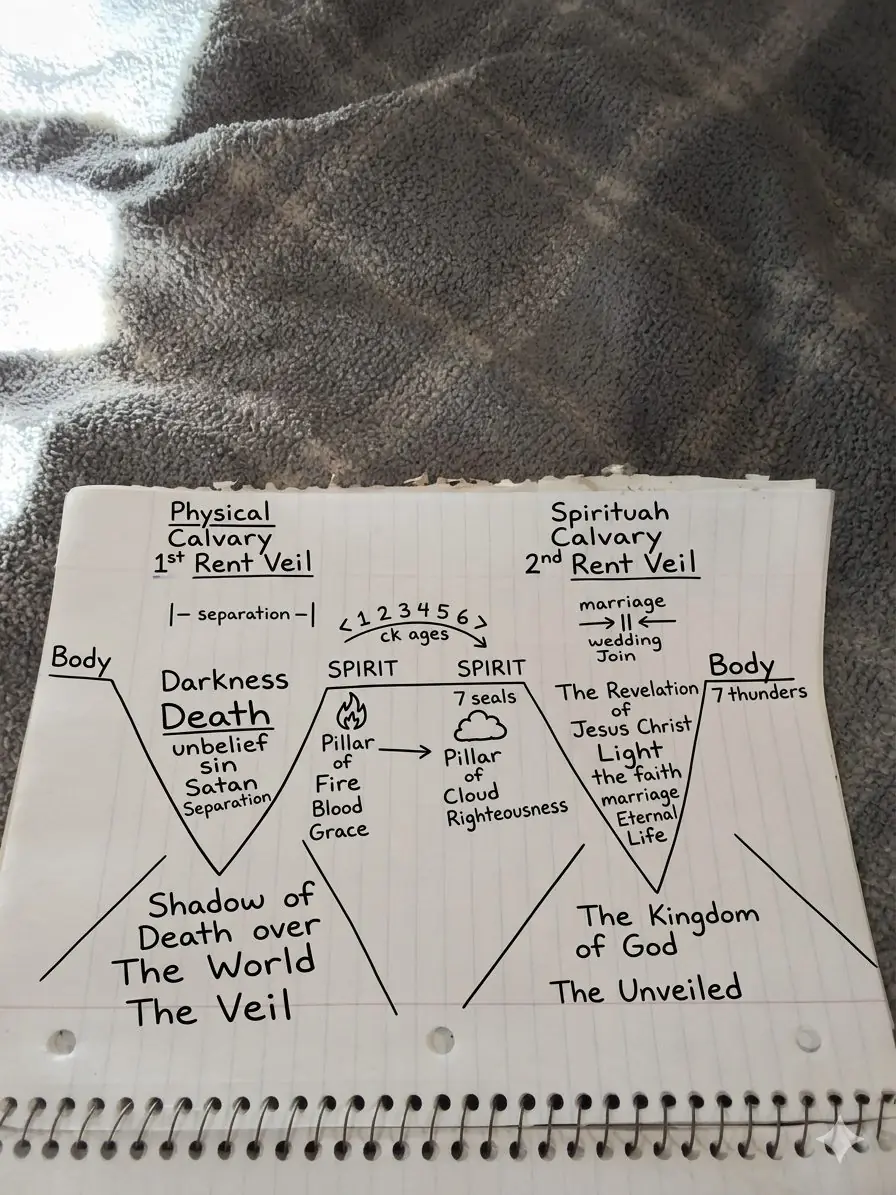 Physical
Calvary
1st Rent Veil
|- separation -|
Body
Darkness
Death
unbelief
sin
Satan
Separation
Shadow of
Death over
The World
The Veil
< 1 2 3 4 5 6 >
ck ages
SPIRIT
Pillar
of
Fire
Blood
Grace
SPIRIT
7 seals
Pillar
of
Cloud
Righteousness
Spirituah
Calvary
2nd Rent Veil
marriage
wedding
Join
The Revelation
of
Jesus Christ
Light
the faith
marriage
Eternal
Life
Body
7 thunders
The Kingdom
of God
The Unveiled